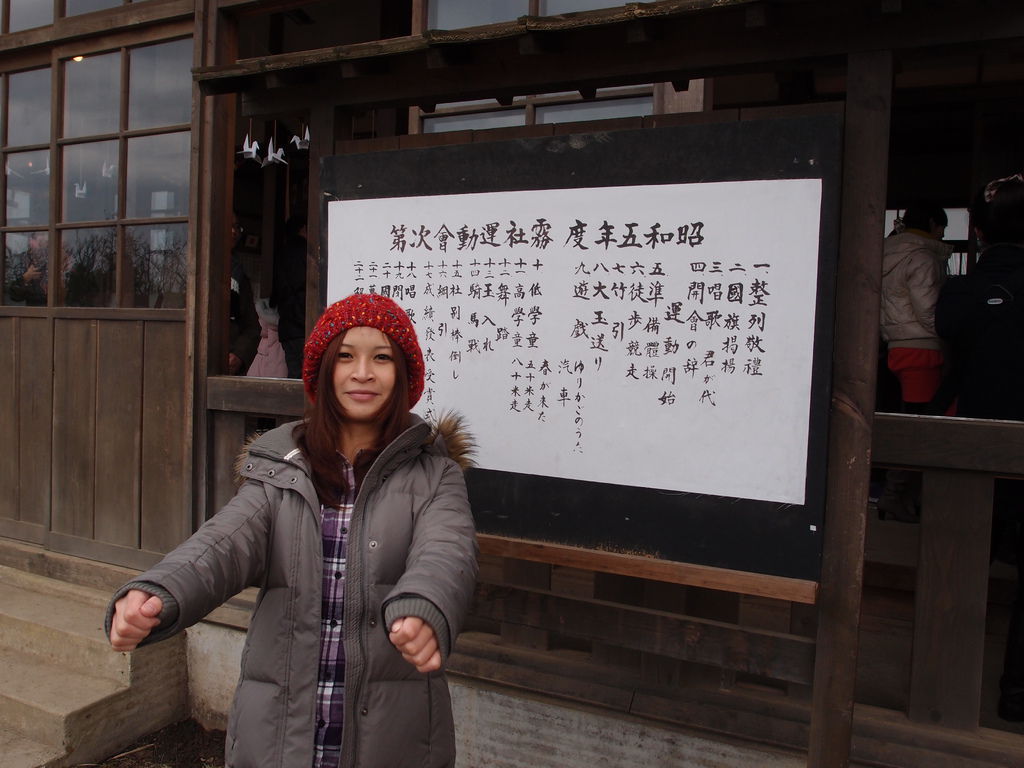 昭和五年度 霧社運動會次第
一 整列敬禮
二 國旗揭揚
三 唱歌 君が代
四 開會の辞
運動開始
五 準備體操
六 徒歩競走
七 竹引
八 大玉送り
九 遊戲
ゆりかごのうた
汽車
春が来た
十 低學童 五十米走
十一 高學童 八十米走
十二 舞踏
十三 玉入れ
十四 騎馬戰
十五 社別棒倒し
十六 綱引
十七 成績發表受賞式
十八 唱歌
十九
二十
二十一
二十二